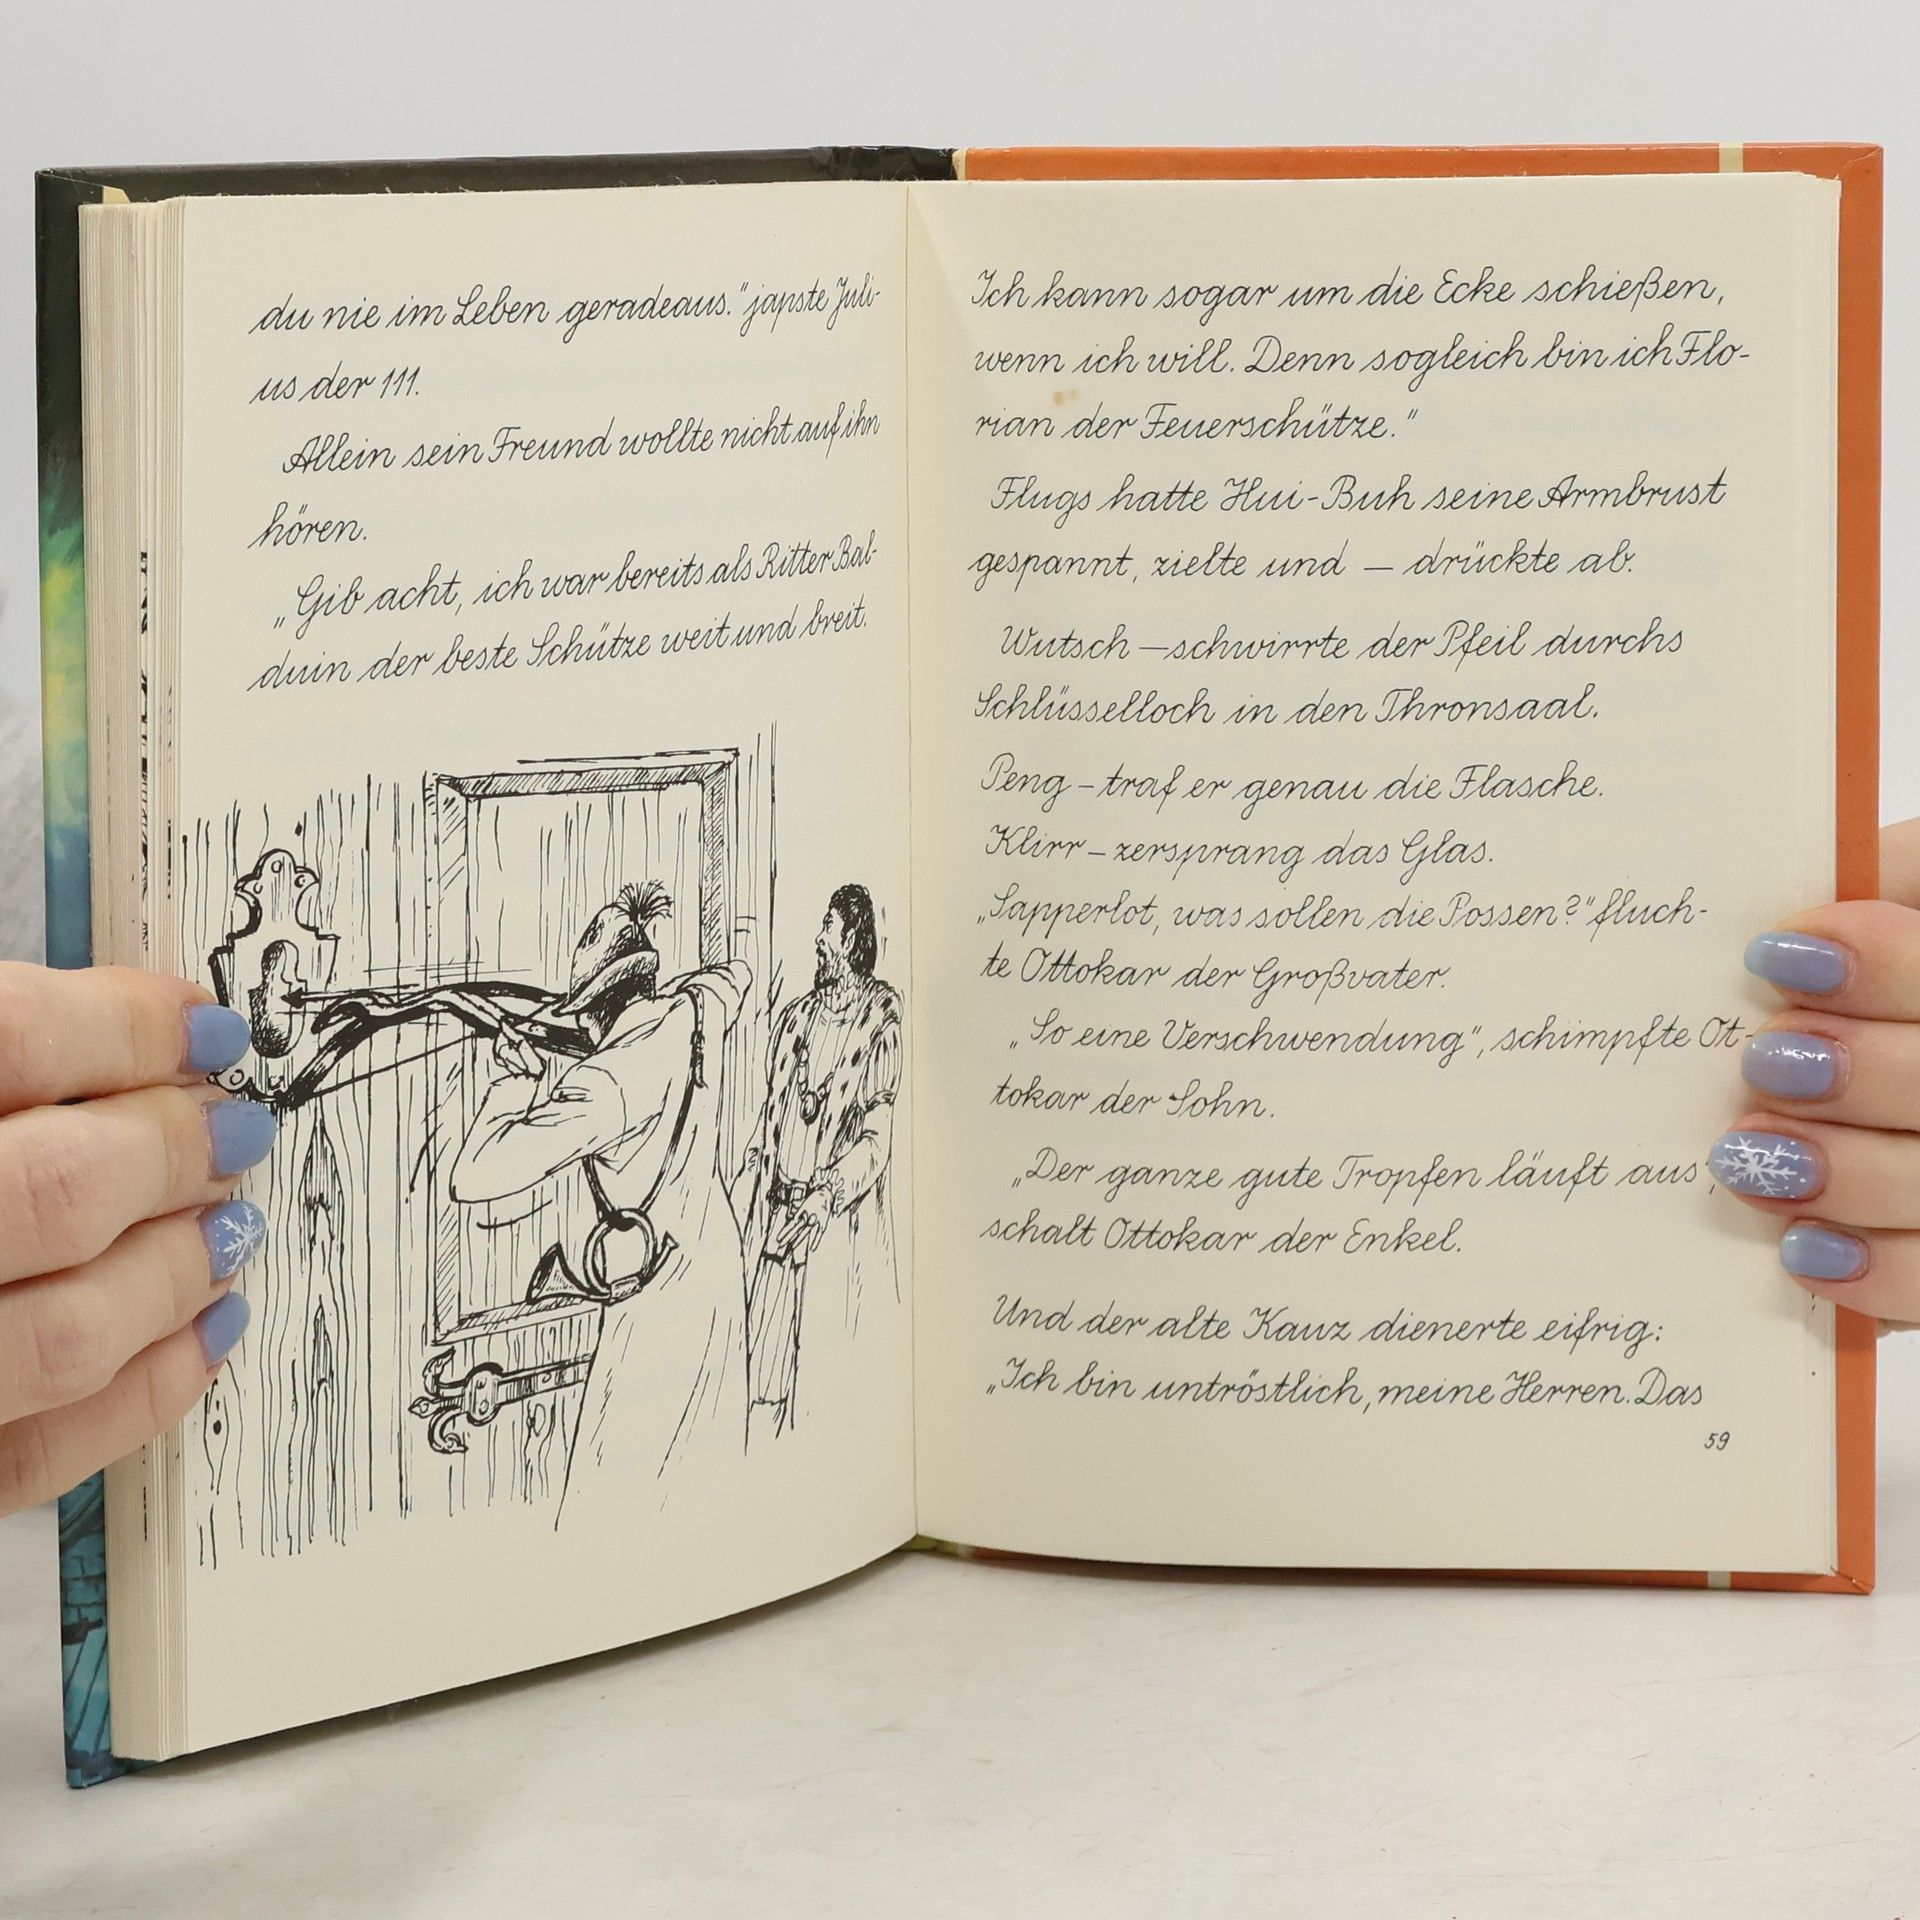 du nie im Leben geradeaus." japste Juli-
us der 111.
Allein sein Freund wollte nicht auf ihn
hören.
„Gib acht, ich war bereits als Ritter Bal-
duin der beste Schütze weit und breit.
Ich kann sogar um die Ecke schießen,
wenn ich will. Denn sogleich bin ich Flo-
rian der Feuerschütze."
Flugs hatte Hui-Buh seine Armbrust
gespannt, zielte und – drückte ab.
Wutsch – schwirrte der Pfeil durchs
Schlüsselloch in den Thronsaal.
Peng – traf er genau die Flasche.
Klirr – zersprang das Glas.
„Sapperlot, was sollen die Possen?" fluch-
te Ottokar der Großvater.
„So eine Verschwendung", schimpfte Ot-
tokar der Sohn.
„Der ganze gute Tropfen läuft aus",
schalt Ottokar der Enkel.
Und der alte Kauz dienerte eifrig:
„Ich bin untröstlich, meine Herren. Das
59